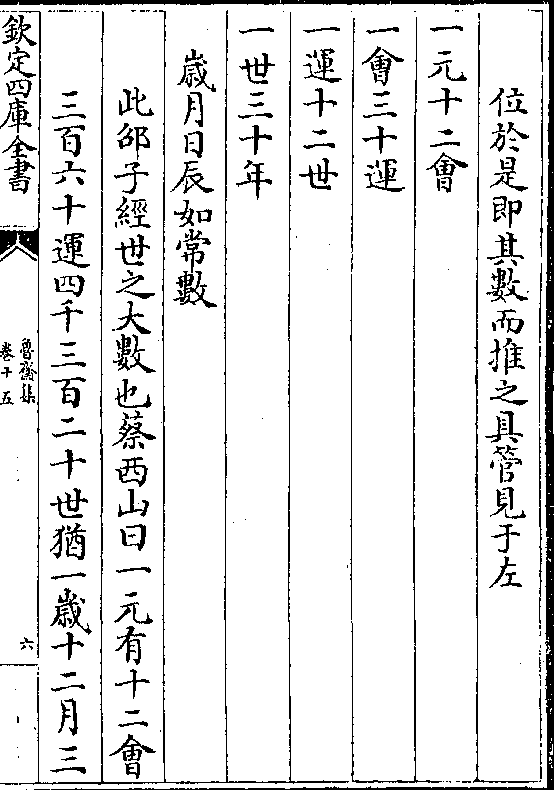 位於是即其數而推之具管見于左
一元十二會
一會三十運
一運十二世
一世三十年
歲月日辰如常數
此邵子經世之大數也蔡西山曰一元有十二會
三百六十運四千三百二十世猶一歲十二月三
欽定四庫全書
魯齋集
卷十五
六